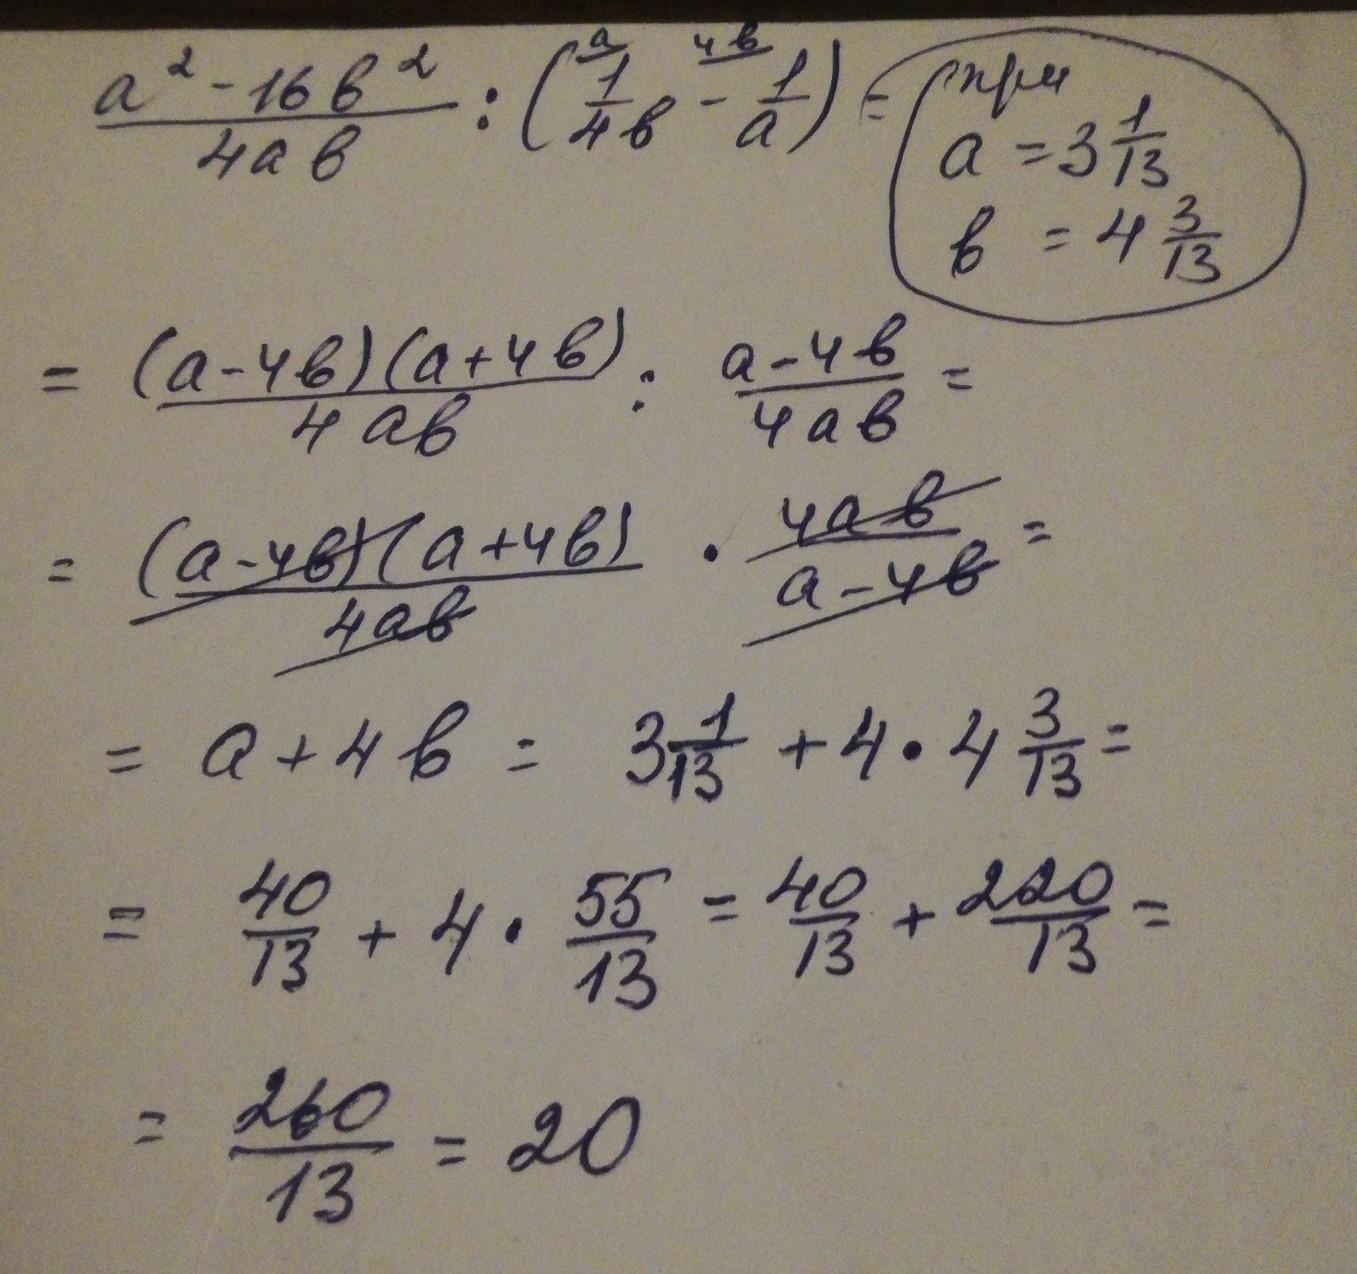 (a² - 16b²)/(4ab) : (1/(4b) - 1/a) = при
a
4b
a = 3 1/13
b = 4 3/13
= (a-4b)(a+4b)/(4ab) : (a-4b)/(4ab) =
= (a-4b)(a+4b)/(4ab) · 4ab/(a-4b) =
= a + 4b = 3 1/13 + 4 · 4 3/13 =
= 40/13 + 4 · 55/13 = 40/13 + 220/13 =
= 260/13 = 20